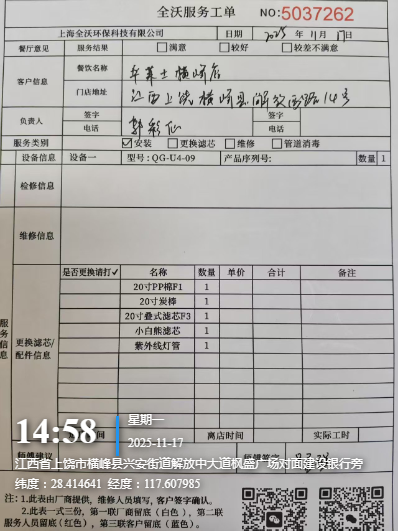 全沃服务工单
NO:5037262
上海全沃环保科技有限公司 日期 2025 年 11 月 17日
餐厅意见 服务结果 □满意 □较好 □较差不满意
客户信息 餐饮名称 华莱士横峰店
门店地址 江西上饶横峰县解放西路14号
负责人 签字 签字
电话 电话
服务类别 ☑安装 □更换滤芯 □维修 □管道消毒
设备信息 设备一 型号:QG-U4-09 产品序列号: 数量 1
检修信息
维修信息
服务信息
更换滤芯/配件信息
是否更换请打✓ 名称 数量 单价 合计 备注
20寸PP棉F1 1
20寸炭棒 1
20寸叠式滤芯F3 1
小白熊滤芯 1
紫外线灯管 1
时间 离店时间 实际工时
14:58
星期一
2025-11-17
江西省上饶市横峰县兴安街道解放中大道枫盛广场对面建设银行旁
纬度:28.414641 经度:117.607985
备注:
1.此表由厂商提供,维修人员填写,客户签字确认。
2.此表一式三份,第一联厂商留底(白色)、第二联
服务人员留底(红色)、第三联客户留底(蓝色)。